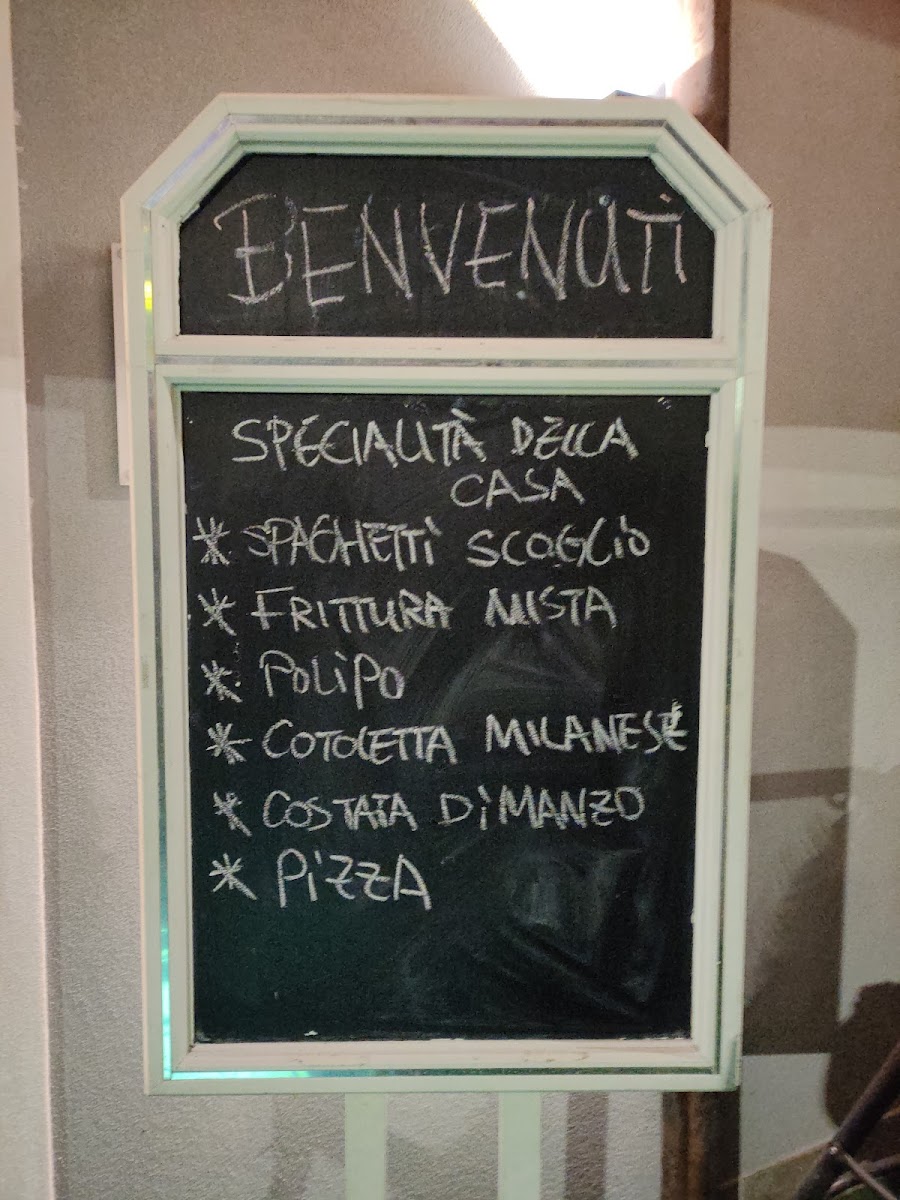 BENVENUTI
SPECIALITÀ DELLA
CASA
* SPAGHETTI SCOGLIO
* FRITTURA MISTA
* POLIPO
* COTOLETTA MILANESE
* COSTATA DI MANZO
* PIZZA